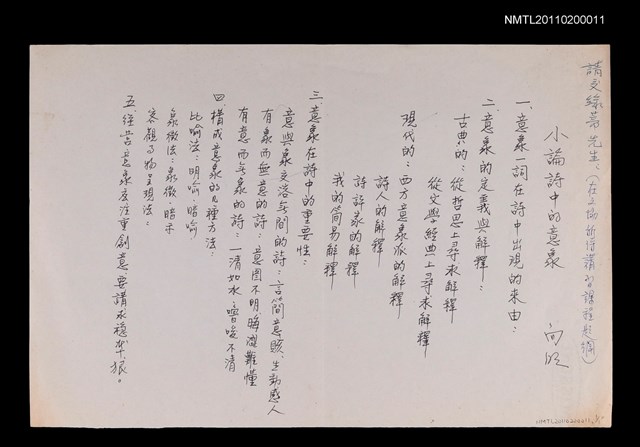 NMTL20110200011
請交綠蒂先生(在文協新詩講習課程題綱)
小論詩中的意象 向明
一、意象一詞在詩中出現的來由:
二、意象的定義與解釋:
古典的:從哲思上尋求解釋
從文學經典上尋求解釋
現代的:西方意象派的解釋
詩人的解釋
詩評家的解釋
我的簡易解釋
三、意象在詩中的重要性:
意與象交溶無間的詩:言簡意賅、生動感人
有象而無意的詩:意圖不明、晦澀難懂
有意而無象的詩:一清如水、嚕唆不清
四、構成意象的幾種方法:
比喻法:明喻、暗喻
象徵法:象徵、暗示
客觀事物呈現法:
五、經營意象應注重創意,要講求穩、準、狠。
NMTL20110200011